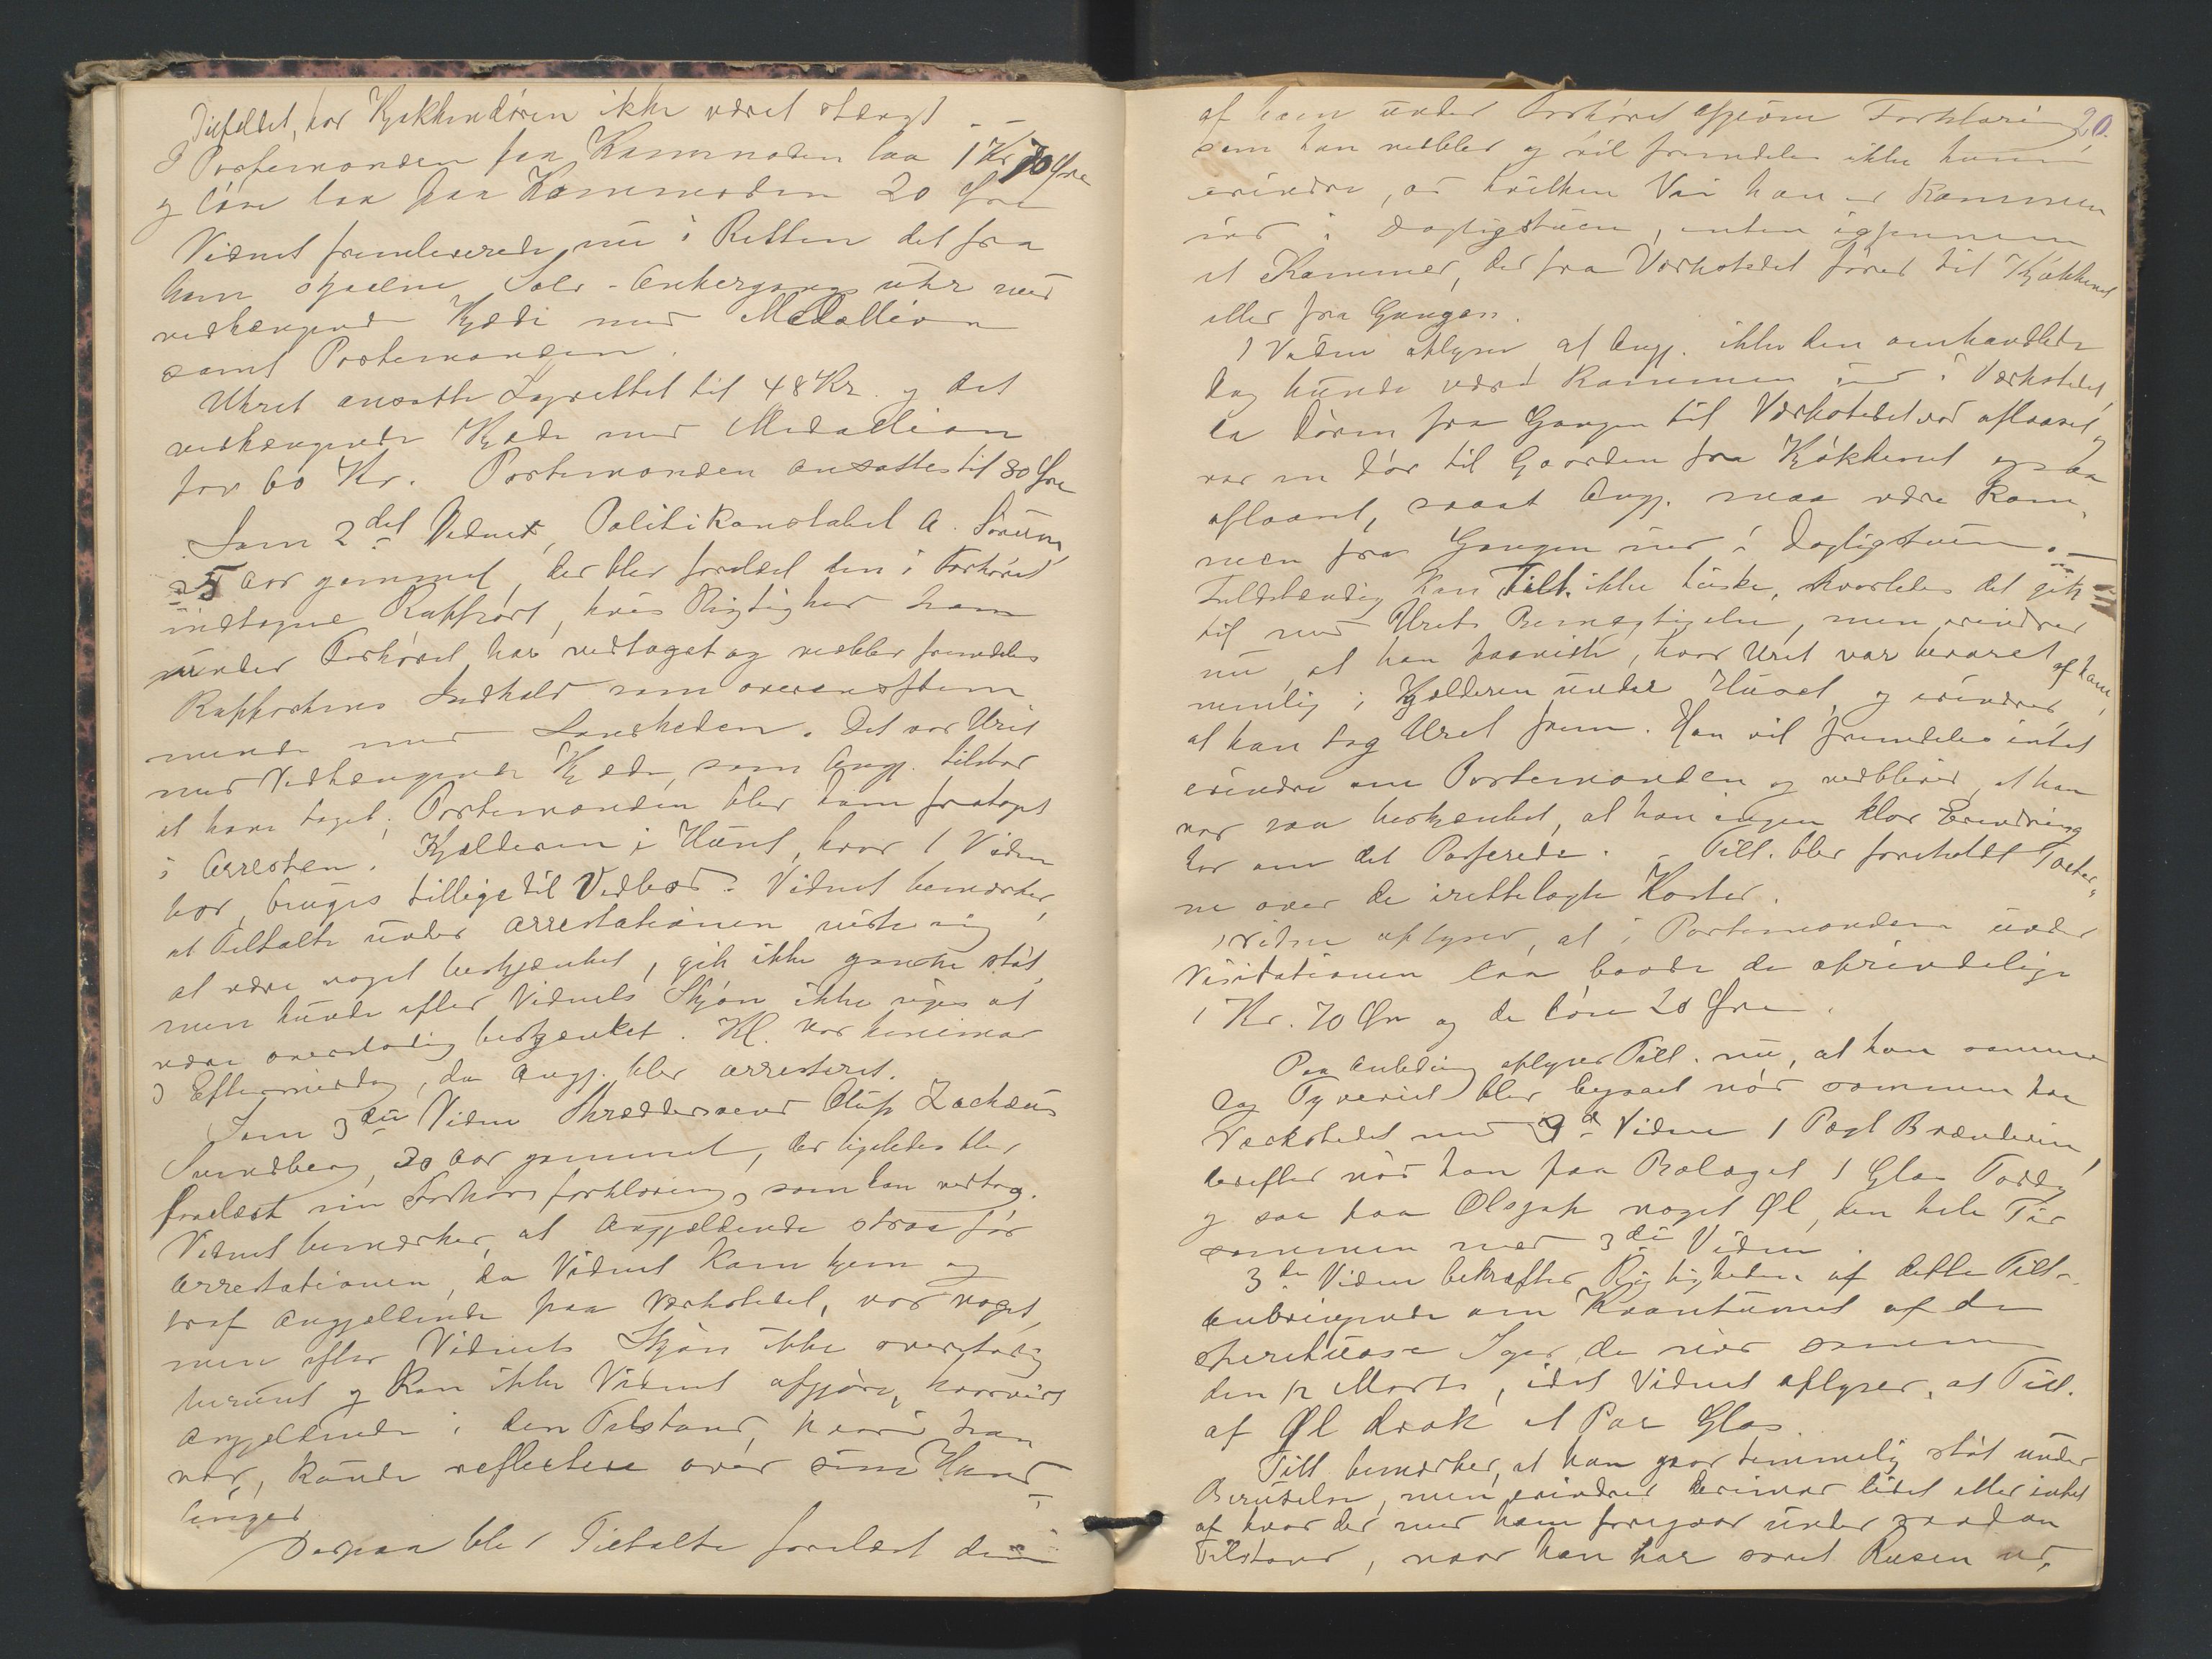 Tilfældet, har Kjøkkendøren ikke været stængt. –
I Portemonæen paa Kammoden laa 1 Kr 70 Øre
og løse laa paa Kommoden 20 Øre
Vidnet fremleverede nu i Retten det fra
ham stjaalne Sølv-Ankergangsuhr med
vedhængende Kjæde med Medallion
samt Portemonæen.
Uhret ansatte Lagrettet til 48 Kr. og det
vedhængende Kjæde med Medallion
for 60 Kr. Portemonæen ansattes til 80 Øre
Som 2det Vidne, Politikonstabel A. Sørum,
25 Aar gammel, der blev forelæst den i Forhøret
indtagne Rapport, hvis Rigtighed han
under Forhøret har vedtaget og vedblev fremdeles
Rapportens Indhold som overensstem
mende med Sandheden. Det var Uret
med Vedhængende Kjæde, som Angj. tilstod
at have taget; Portemonæen blev ham frataget
i Arresten. Kjælderen i Huset, hvor 1 Vidne
bor, bruges tillige til Vedbod. Vidnet bemærker,
at Tiltalte under Arrestationen viste sig
at være noget beskjænket, gik ikke ganske støt,
men kunde efter Vidnets Skjøn ikke siges at
være overstadig beskjænket. Kl. var henimod
3 Eftermiddag, da Angj. blev arresteret.
Som 3die Vidne Skræddersvend Oluf Zachæus
Sundberg, 30 Aar gammel, der ligeledes blev
forelæst sin Forhørsforklaring, som han vedtog.
Vidnet bemærker, at Angjældende strax før
Arrestationen, da Vidnet kom hjem og
traf Angjældende paa Værkstedet, var noget,
men efter Vidnets Skjøn ikke overstadig
beruset og kan ikke Vidnet afgjøre, hvorvidt
Angjældende i den Tilstand, hvori han
var, kunde reflectere over sine Hand-
linger.
Derpaa blev Tiltalte forelæst den
20.
af ham under Forhøret afgivne Forklaring
som han vedblev og vil fremdeles ikke kunne
erindre, ad hvilken Vei han er kommen
ind i Dagligstuen, enten igjennem
et Kammer, der fra Værkstedet fører til Kjøkkenet
eller fra Gangen.
1 Vidne oplyser at Angj. ikke den omhandlede
Dag kunde være kommen ind i Værkstedet,
da Døren fra Gangen til Værkstedet var aflaaset, og
var en Dør til Gaarden fra Kjøkkenet ogsaa
aflaaset, saaat Angj. maa være kom-
men fra Gangen ind i Dagligstuen. –
Fuldstændig kan Tilt. ikke huske, hvorledes det gik
til med Urets Bemægtigelse, men erindrer
nu, at han paaviste, hvor Uret var bevaret af ham,
nemlig i Kjælderen under Huset, og erindrer,
at han tog Uret frem. Han vil fremdeles intet
erindre om Portemonæen og vedbliver, at han
var saa beskjænket, at han ingen klar Erindring
har om det Passerede. – Tilt. blev foreholdt Taxter-
ne over de irettelagte Koster.
1 Vidne oplyser, at i Portemonæen under
Visitationen laa baade de oprindelige
1 Kr. 70 Øre og de løse 20 Øre.
Paa Anledning oplyser Tilt. nu, at han samme
Dag Tyveriet blev begaaet nød sammen paa
Værkstedet med 3de Vidne 1 Pægl Brændevin,
derefter nød han paa Bolaget 1 Glas Toddy
og saa paa Ølsjap noget Øl, den hele Tid
sammen med 3die Vidne.
3de Vidne bekræfter Rigtigheden af dette Tilt.
Anbringende om Kvantumet af de
spirituøse Sager, de nød sammen
den 12 Marts, idet Vidnet oplyser, at Tilt.
af Øl drak et Par Glas.
Tilt. bemærker, at han gaar temmelig støt under
Beruselse, men erindrer derimod lidet eller intet
af hvad der med ham foregaar under saadan
Tilstand, naar han har sovet Rusen ud,